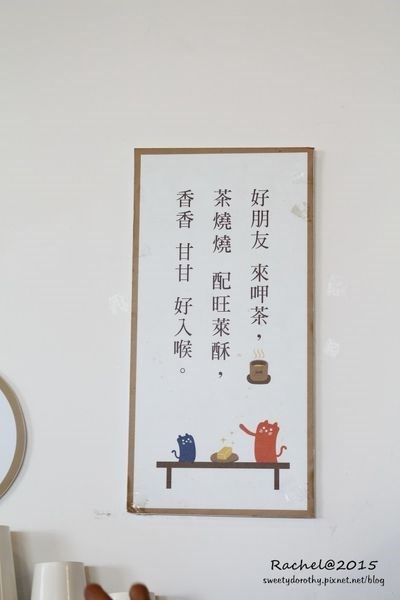 好朋友 來呷茶，
茶燒燒 配旺萊酥，
香香 甘甘 好入喉。
Rachel@2015
sweetydorothy.pixnet.net/blog